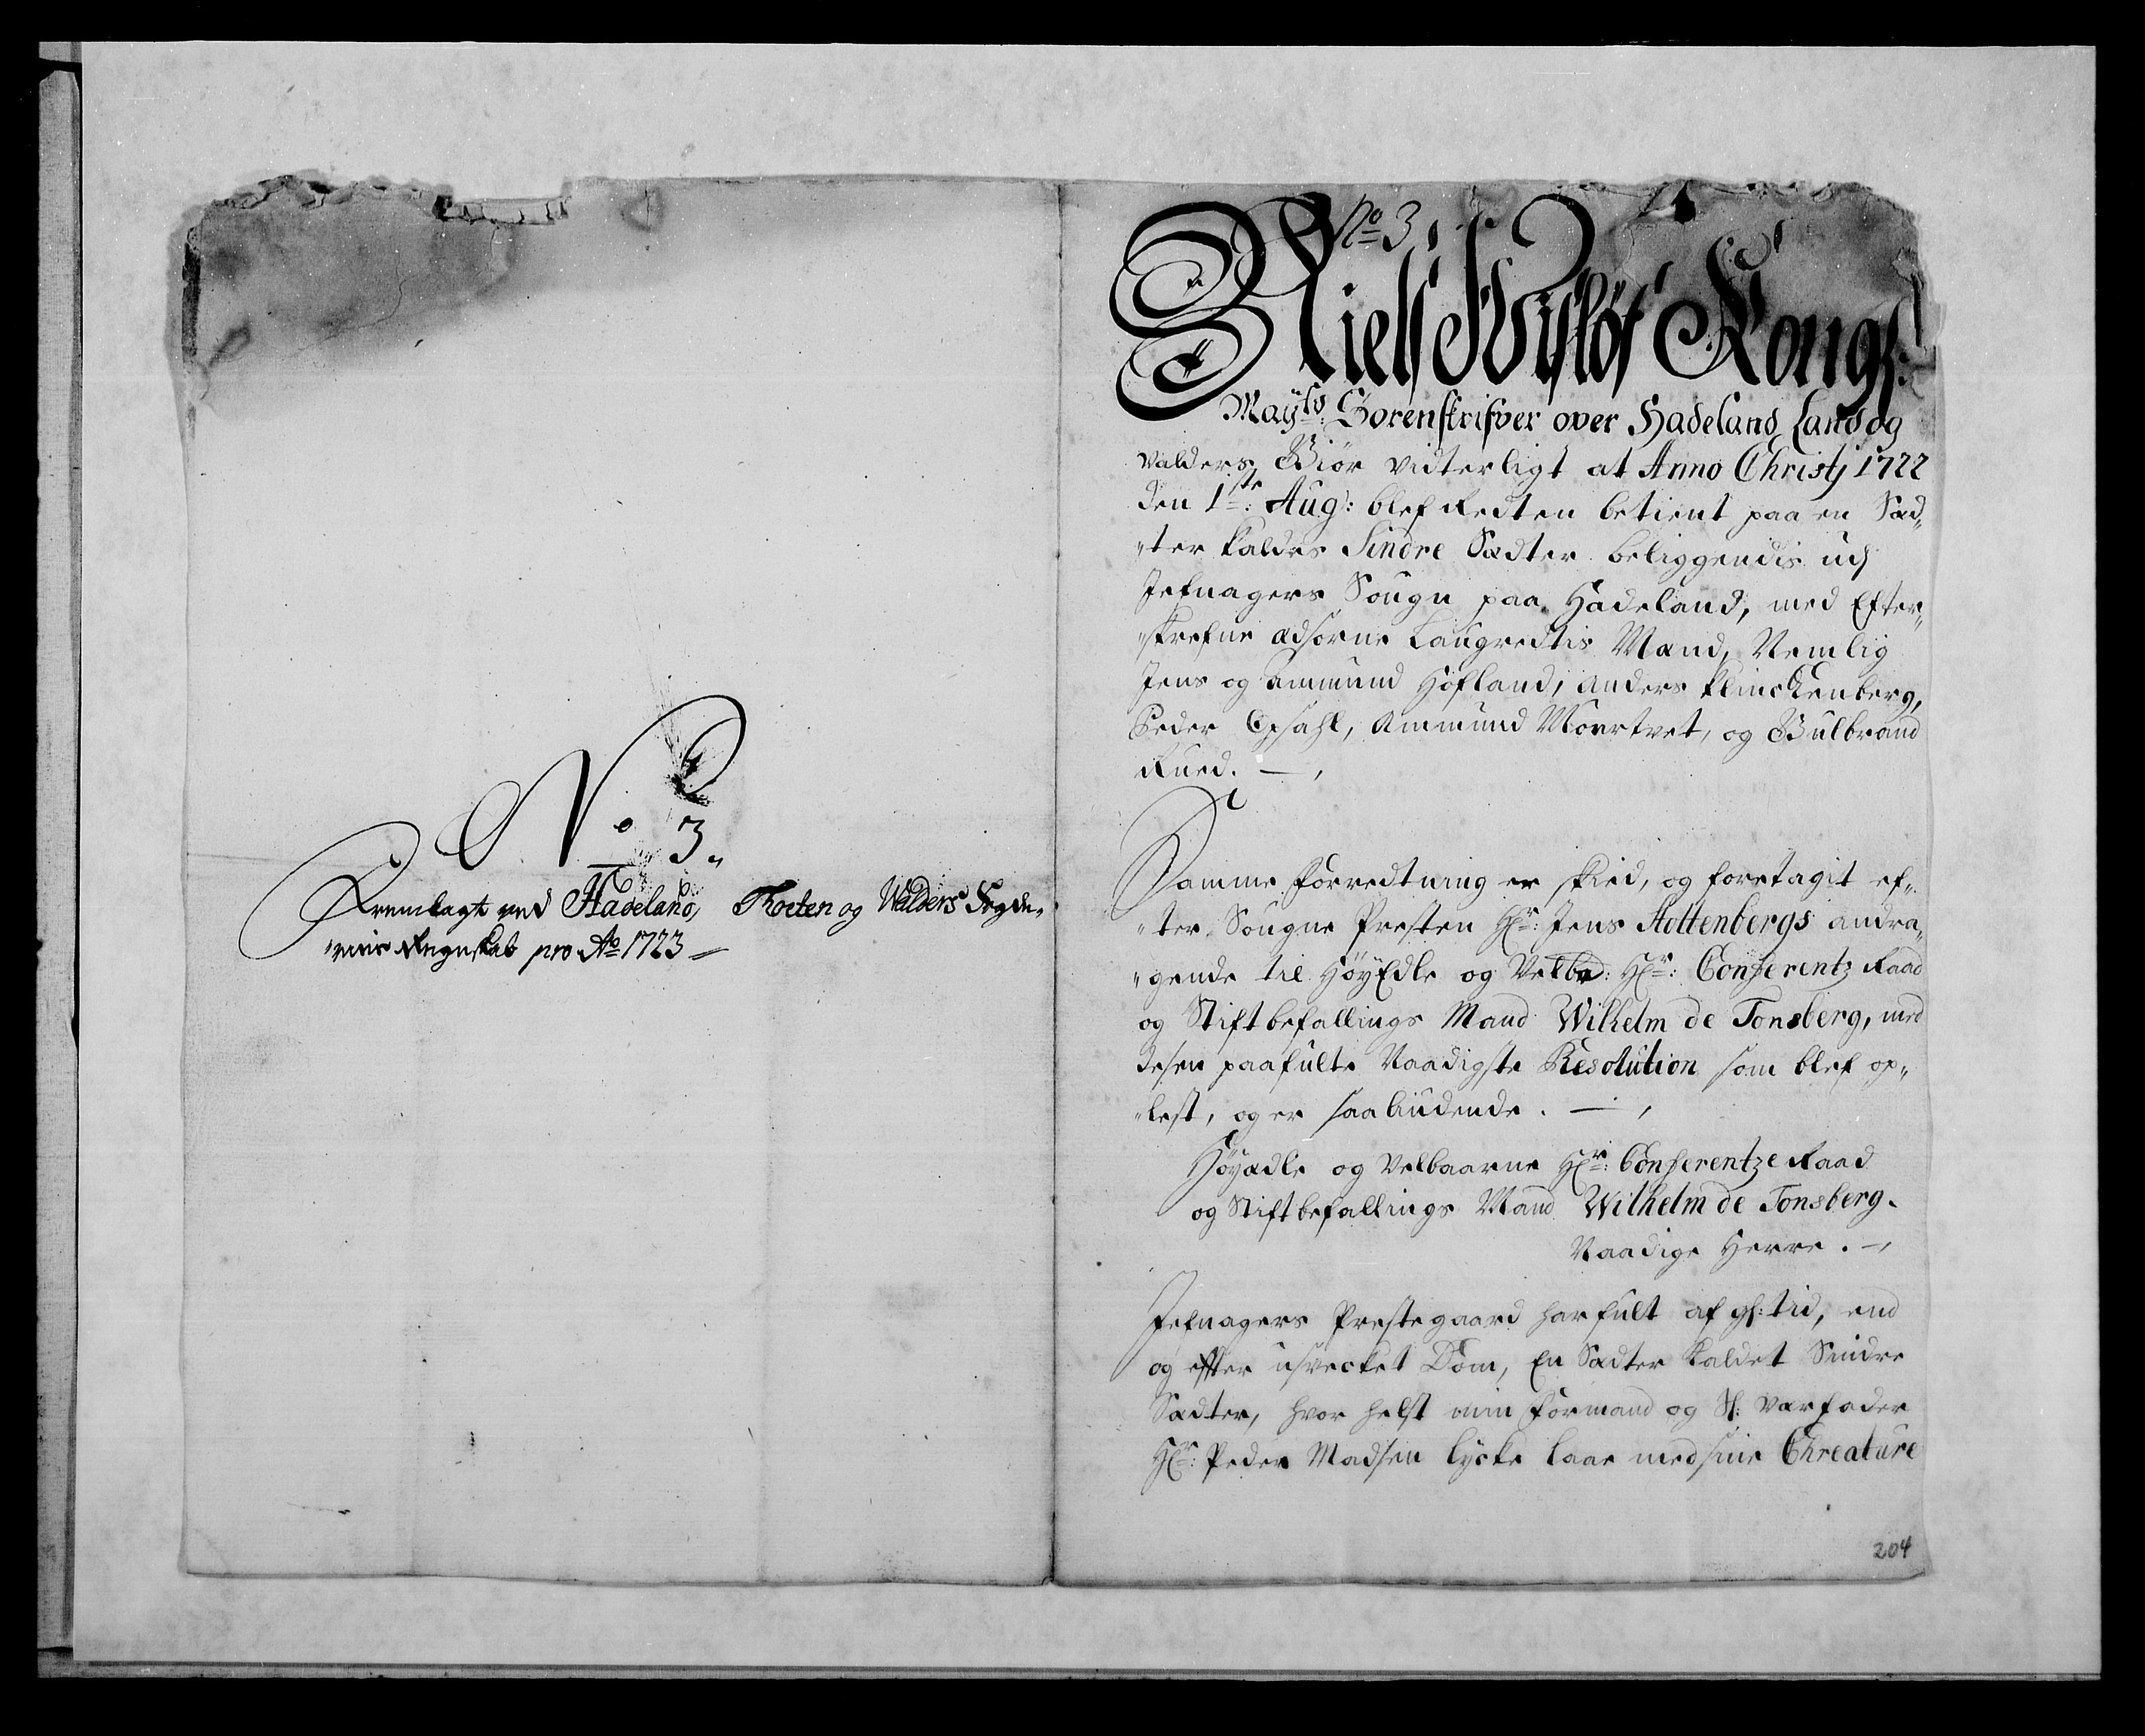 No 3.
Fremlagt ved Hadeland, Thoten og Walders Fogde„
„riis Regnskab pro Ao 1723 –
No 3
Niels Kongs:
Mayts: Sorenskrifver over Hadeland Land og
Valders, Giör vidterligt at Anno Christj 1722
den 1ste: Aug: blef Retten betient paa en Sæd„
„ter kaldes Sindre Sædter beliggendis udj
Jefnagers Sougn paa Hadeland, med Efter„
„skrefne Edsorne Laugrettis Mænd, Nemlig
Jens og Ammund Hofland, Anders Klinckenberg,
Peder Opsahl, Ammund Moertvet, og Gulbrand
Rued. —,
Samme Forretning er skied, og foretagit ef„
„ter Sougne Presten Hr: Jens Stottenbergs andra„
„gende til HøyEdle og Velbr: Hr: Conferentz Raad
og Stiftbefallings Mand Wilhelm de Tonsberg, med
desen paafulte Naadigste Resolution som blef op„
„lest, og er saaliudende. —,
Høyædle og Velbaarne Hr: Conferentze Raad
og Stiftbefallings Mand Wilhelm de Tonsberg.
Naadige Herre. –,
Jefnagers Prestegaard har fult af gl: tid, end
og efter usvecket Dom, En Sædter kaldet Sindre
Sædter, hvor helst min Formand og Sl: Værfader
Hr: Peder Madsen Lycke laae med sine Chreature
204